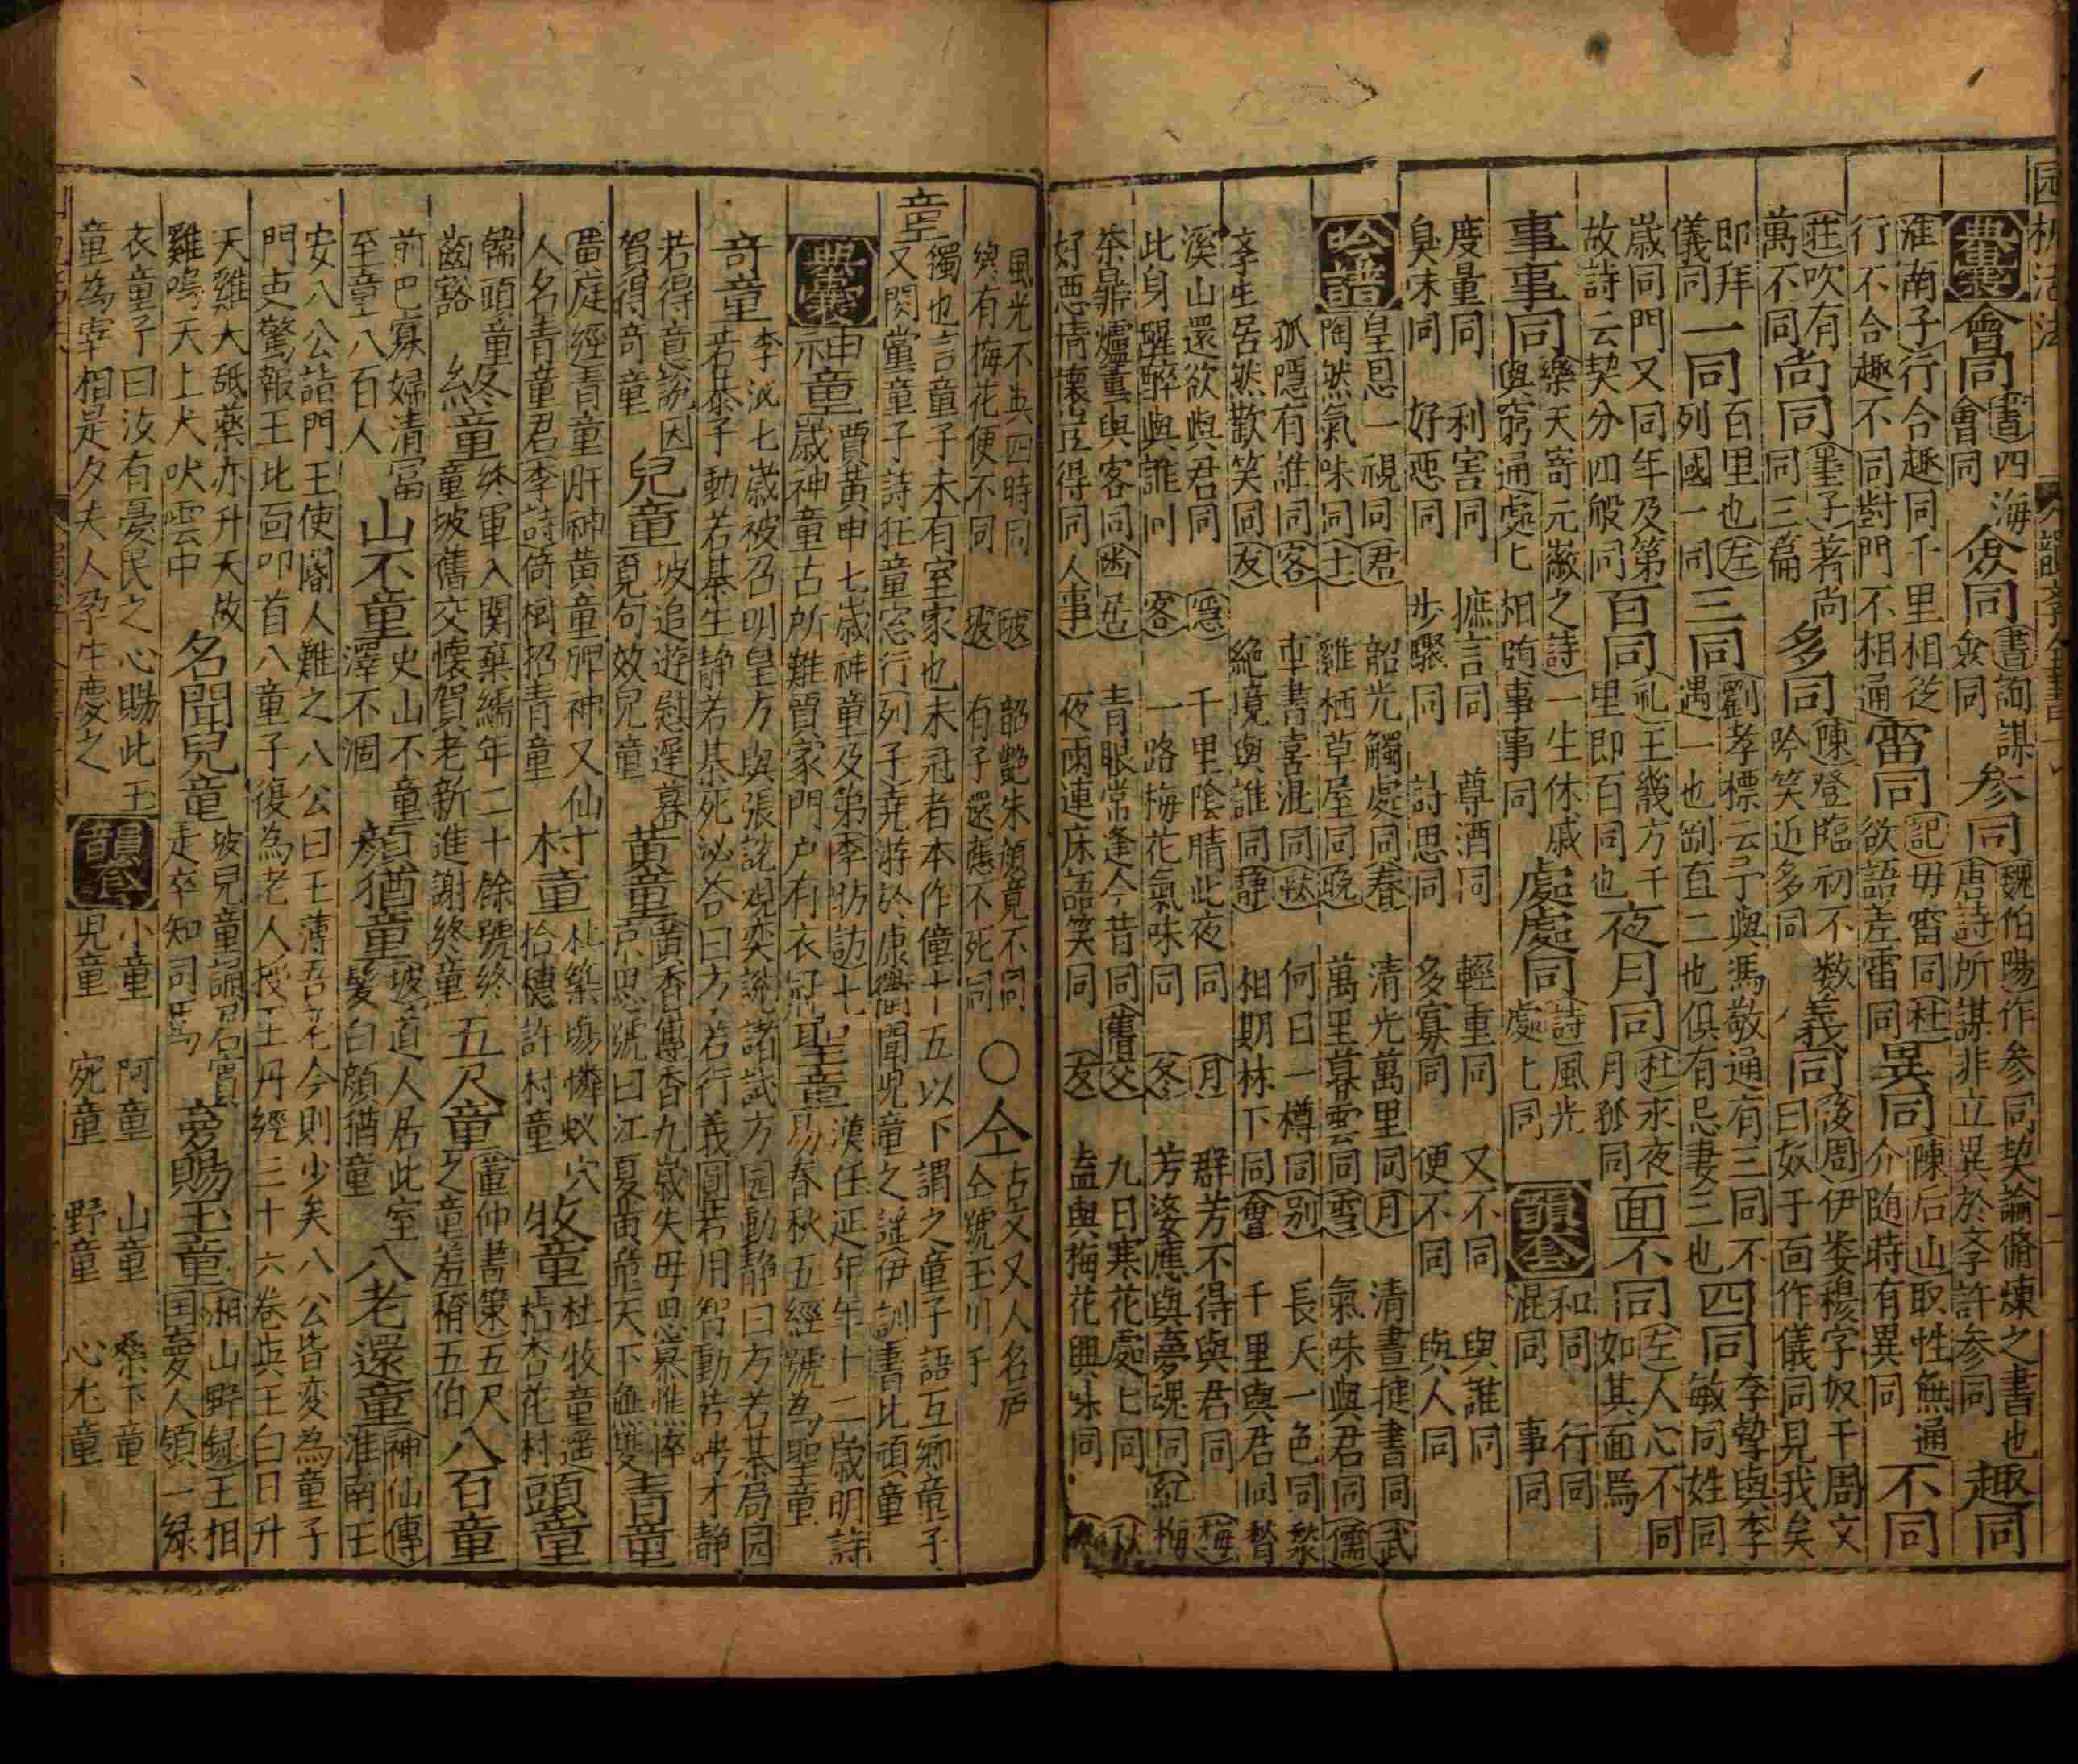 會同書四海會同
僉同書詢謀僉同
參同魏伯陽作參同契論脩煉之書也唐詩所謀非立異於文許參同
趣同
淮南子行合趣同千里相從行不合趣不同對門不相通
雷同記毋雷同杜欲語羞雷同
異同陳后山取性無通介随時有異同
不同
莊吹有萬不同
尚同墨子著尚同三篇
多同陳登臨初不數吟笑近多同
義同後周伊婁穆字奴干周文曰奴于面作儀同見我矣
即拜儀同
一同百里也左列國一同
三同劉孝標云予與馮敬通有三同不遇一也剛直二也俱有忌妻三也
四同李摯與李敏同姓同
歲同門又同年及第故詩云契分四般同
百同礼王畿方千里即百同也
夜月同杜永夜月孤同
面不同左人心不同如其面焉
事事同樂天寄元微之詩一生休戚與窮通處匕相隨事事同
處處同詩風光處匕同
韻套
和同 行同
混同 事同
度量同 利害同 摭言同 尊酒同 輕重同 又不同 與誰同
臭味同 好惡同 步驟同 討思同 多寡同 便不同 與人同
吟譜
皇恩一視同君 韶光觸處同春 清光萬里同月 清晝揵書同武
陶然氣味同士 雞栖草屋同晚 萬里暮雲同雪 氣味與君同儒
孤隱有誰同客 車書喜混同 何日一樽同別 長天一色同
李生居然歡笑同友 絶境與誰同静 相期林下同會 千里與君同
溪山還欲與君同隱 千里陰晴此夜同月 群芳不得與君同梅
此身醒醉與誰同客 一路梅花氣味同冬 芳姿應與夢魂同紅梅
茶鼎爐薰與客同幽居 青眼常逢今昔同舊交 九日寒花處匕同
好惡情懷豈得同人事 夜雨連床語笑同友 孟與梅花興味同
風光不與四時同 韶艷朱顔竟不同
總有梅花便不同 有子還應不死同
○仝古文又人名庐仝號玉川子
童獨也言童子未有室家也未冠者本作僮十五以下謂之童子語互鄉童子又闕黨童子詩狂童窓行列子堯游於康衢聞兒童之謡伊訓書比頑童
典彙
神童賈黃中七歲神童及第李昉訪七歲神童古所難賈家門户有衣冠
聖童漢任延年十二歲明詩易春秋五經號為聖童
奇童李泌七歲被召明皇方與張說观奕說諸試方园動静曰方若棊局园若棊子動若棊生静若棊死泌答曰方若行義圓若用智動若騁才静若得意說因賀得奇童
兒童坡追遊慰遲暮覓句效兒童
黃童黃香傳香九歲失母思慕憔悴京師號曰江夏黃童天下無雙
青童
黃庭經青童肝神黃童脾神又仙人名青童君李詩倚樹招青童
村童杜築塲憐蚁穴拾穗許村童
牧童杜牧童遥指杏花村
頭童
韓頭童齒豁
終童終軍入関棄繻年二十餘號終童坡舊交懷賀老新進謝終童
五尺童董仲書策五尺之童羞稱五伯
八百童
前巴寡婦清富至童八百人
山不童史山不童澤不涸
顔猶童坡道人居此室髮白顔猶童
八老還童神仙傳淮南王安八公詣門王使閽人難之八公曰王薄吾老今則少矣八公皆变為童子門吏驚報王比回叩首八童子復為老人授王丹經三十六卷與王白日升天雞犬䑛藥亦升天故雞鳴天上犬吠雲中
名聞兒童坡兒童誦君實走卒知司馬
夢賜玉童湘山野録王相国夢人領一緑衣童子曰汝有憂民之心賜此玉童為宰相是夕夫人孕生慶之
韻套
小童 阿童 山童 桑下童
兒童 宛童 野童 心尤童